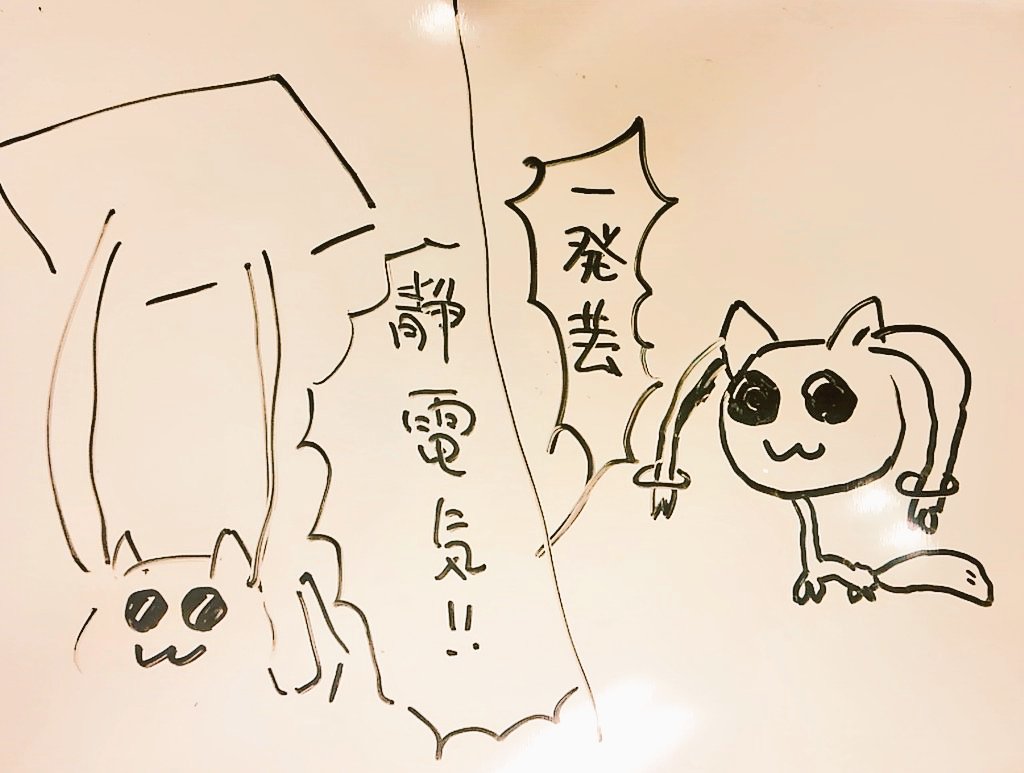 一発芸
静電気!!